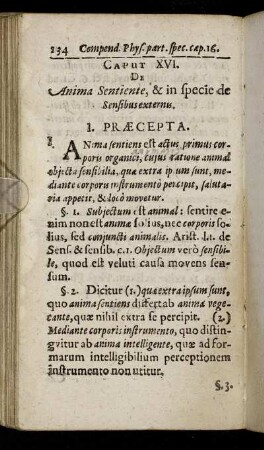 134 Compend. Phys. part. spec. cap. 16.
CAPUT XVI.
DE
Anima Sentiente, & in specie de
Sensibus externis.
I. PRÆCEPTA.
ANima sentiens est actus primus cor-
poris organici, cujus ratione animal
objecta sensibilia, quæ extra ipsum sunt, me-
diante corporis instrumento percipit, saluta-
ria appetit, & loco movetur.
§. 1. Subjectum est animal: sentire e-
nim non est animæ solius, nec corporis so-
lius, sed conjuncti animalis. Arist. l. 1. de
Sens. & sensib. c. 1. Objectum verò sensibi-
le, quod est veluti causa movens sen-
sum.
§. 2. Dicitur (1.) quæ extra ipsum sunt,
quo anima sentiens differt ab anima vege-
tante, quæ nihil extra se percipit. (2.)
Mediante corporis instrumento, quo distin-
gvitur ab anima intelligente, quæ ad for-
marum intelligibilium perceptionem
instrumento non utitur.
§. 3.